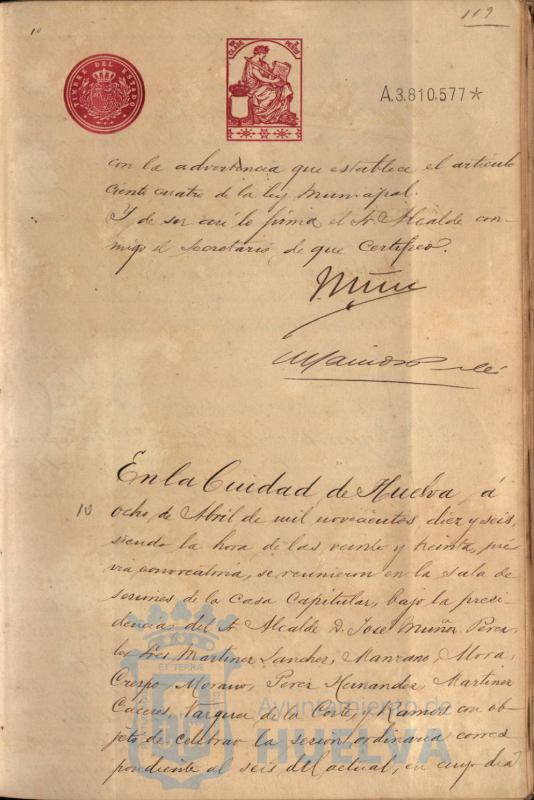 119
10
TIMBRE DEL ESTADO
A.3.810,577*
con la advertencia que establece el artículo
ciento cuatro de la ley Municipal.
Y de ser así lo firma el Sr. Alcalde con-
migo el Secretario, de que Certifico.
En la Ciudad de Huelva, á
10
ocho de Abril de mil novecientos diez y seis,
siendo la hora de las veinte y treinta, pré-
via convocatoria, se reunieron en la sala de
sesiones de la Casa Capitular, bajo la presi-
dencia del Sr. Alcalde D. José Muñoz Perez
los Sres Martinez Sanchez, Manzano, Mora,
Crespo Morano, Perez Hernandez, Martinez
Cáceres, Vazquez de la Corte, y Ramos con ob-
jeto de celebrar la sesion ordinaria corres
pondiente al seis del actual, en cuyo dia
Ayuntamiento de
HUELVA